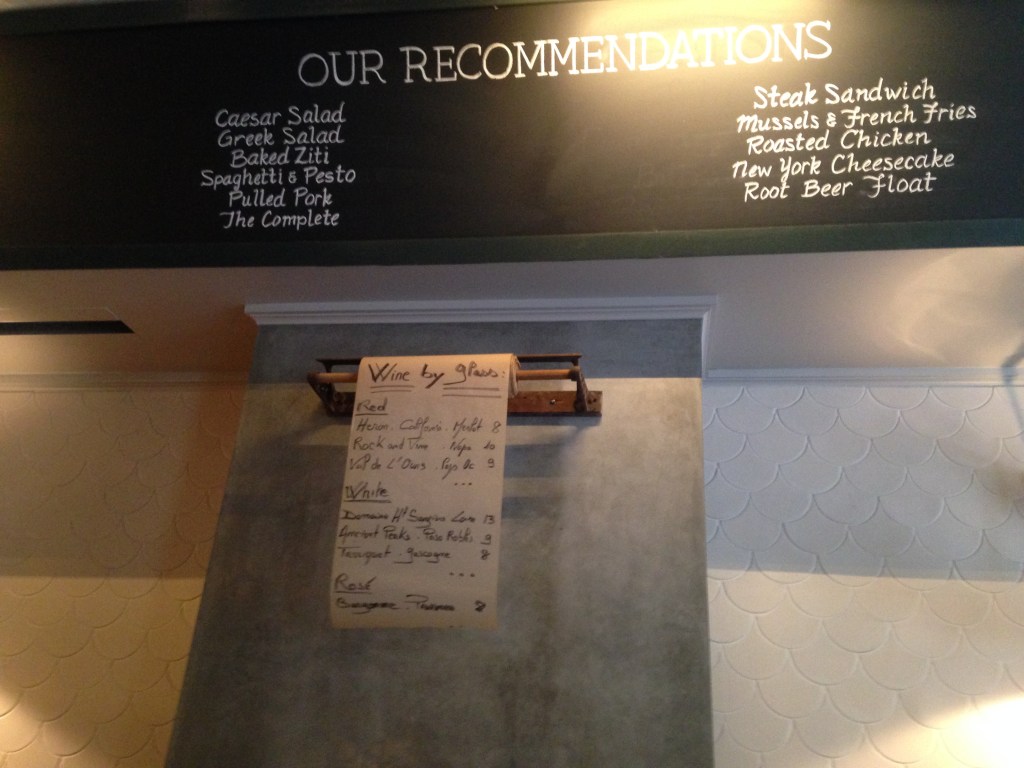 OUR RECOMMENDATIONS
Caesar Salad
Greek Salad
Baked Ziti
Spaghetti & Pesto
Pulled Pork
The Complete
Steak Sandwich
Mussels & French Fries
Roasted Chicken
New York Cheesecake
Root Beer Float
Wine by glass:
Red
Heron. Merlot 8
Rock and Vine. Napa 10
Val de L'Ours. 9
...
White
Domaine 13
Ancient Peaks. Paso Robles 9
Gascogne 8
...
Rosé
8